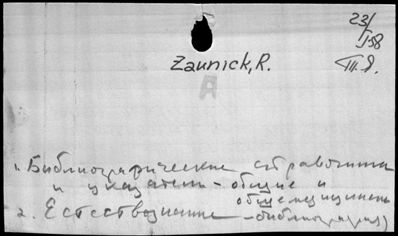 23/
I-58
Zaunick, R.
Ш.Я.
A
1. Библиографические справочники
и указатели - общие и
общемедицинск
2. Естествознание - библиография)